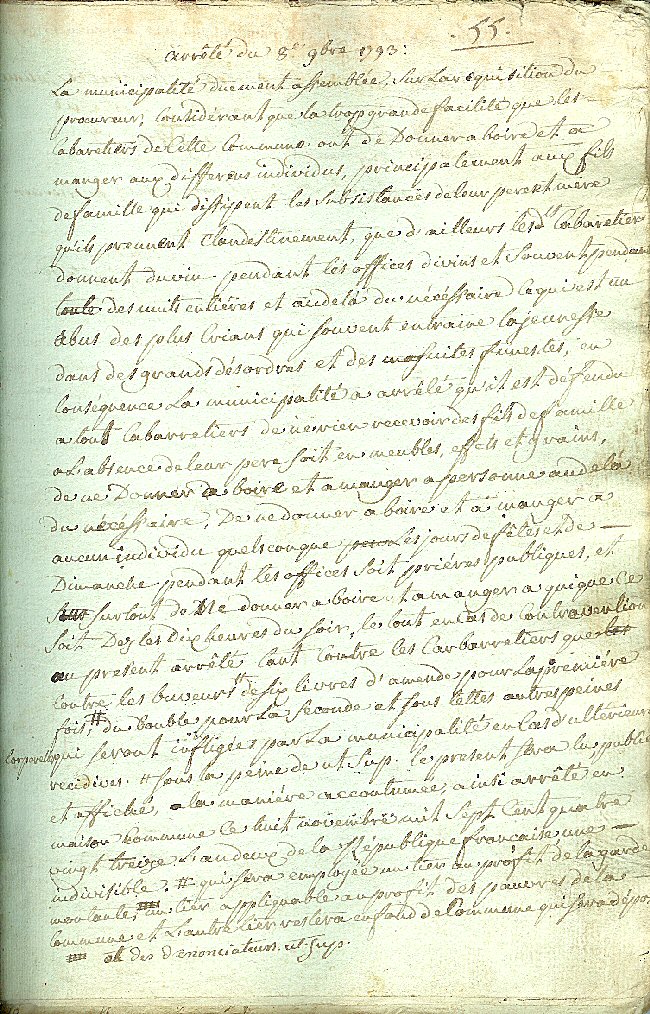 55.
arrêté du 8e 9bre 1793:
La municipalité duement assemblée, Sur La requisition du
procureur, Considérant que la trop grande facilité que les
Cabaretiers de Cette Commune ont de Donner a boire et a
manger aux differens individus, principalement aux fils
de famille qui dissipent les Subsistances de leur pere et mere
qu'ils prennent Clandestinement, que d'ailleurs les dts Cabaretiers
donnent du vin pendant les offices divins et Souvent pendant
des nuits entières et audelà du nécéssaire Ce qui est un
abus des plus Crians qui souvent entraine la jeunesse
dans des grands désordres et des suites funestes, en
Conséquence La municipalité a arrêté qu'il est défendu
a tout Cabarretiers de ne rien recevoir des fils de famille
a L'absence de leur pere Soit en meubles, effets et grains,
de ne Donner a boire et a manger a personne audelà
du nécéssaire, De ne donner a boire et a manger a
aucun individu quelconque Les jours de fêtes et de
Dimanche pendant les offices Soit prières publiques, et
Surtout de Ne donner a boire et a manger a qui que Ce
Soit Des les Dix heures du Soir, le tout en Cas de Contravention
au present arrêté tant Contre les Carbarretiers que
Contre les buveurs de Six livres d'amende pour La première
fois, # du Double pour La Seconde et sous telles autres peines
Corporelles
qui seront infligées par La municipalité en Cas d'ulterieures
recidives. # sous la peine de ut Sup. le present Sera lu, publié
et affiché, a la manière accoutumée, ainsi arrêté en
maison Commune Ce huit novembre mil Sept Cent quatre
vingt treize L'an deux de la République francaise une
indivisible. # qui Sera employée un tier au profit de la garde
montante, un tier applignable au profit des pauvres de la
Commune et L'autre tier restera en fond de Commune qui Sera dépo
des dénonciateurs. ut Sup.